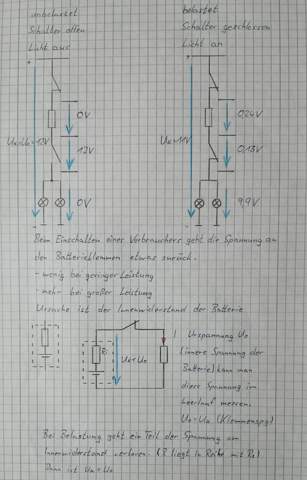 unbelastet
Schalter offen
Licht aus
belastet
Schalter geschlossen
Licht an
0V
12V
0V
0,24V
UK=11V
0,13V
9,9V
Beim Einschalten eines Verbrauchers geht die Spannung an
den Batterieklemmen etwas zurück.
- wenig bei geringer Leistung
- mehr bei großer Leistung
Ursache ist der Innenwiderstand der Batterie
Ri
Urspannung U0
(innere Spannung der
Batterie) kann man
diese Spannung im
Leerlauf messen.
(Klemmenspg)
Bei Belastung geht ein Teil der Spannung am
Innenwiderstand verloren. (R liegt in Reihe mit Ri).
Dann ist